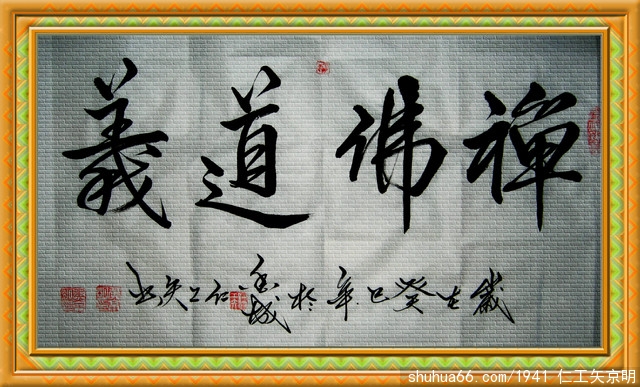 禪佛道義
歲在癸巳年於香城仁工矢书
shuhua66.com/1941 仁工矢京明